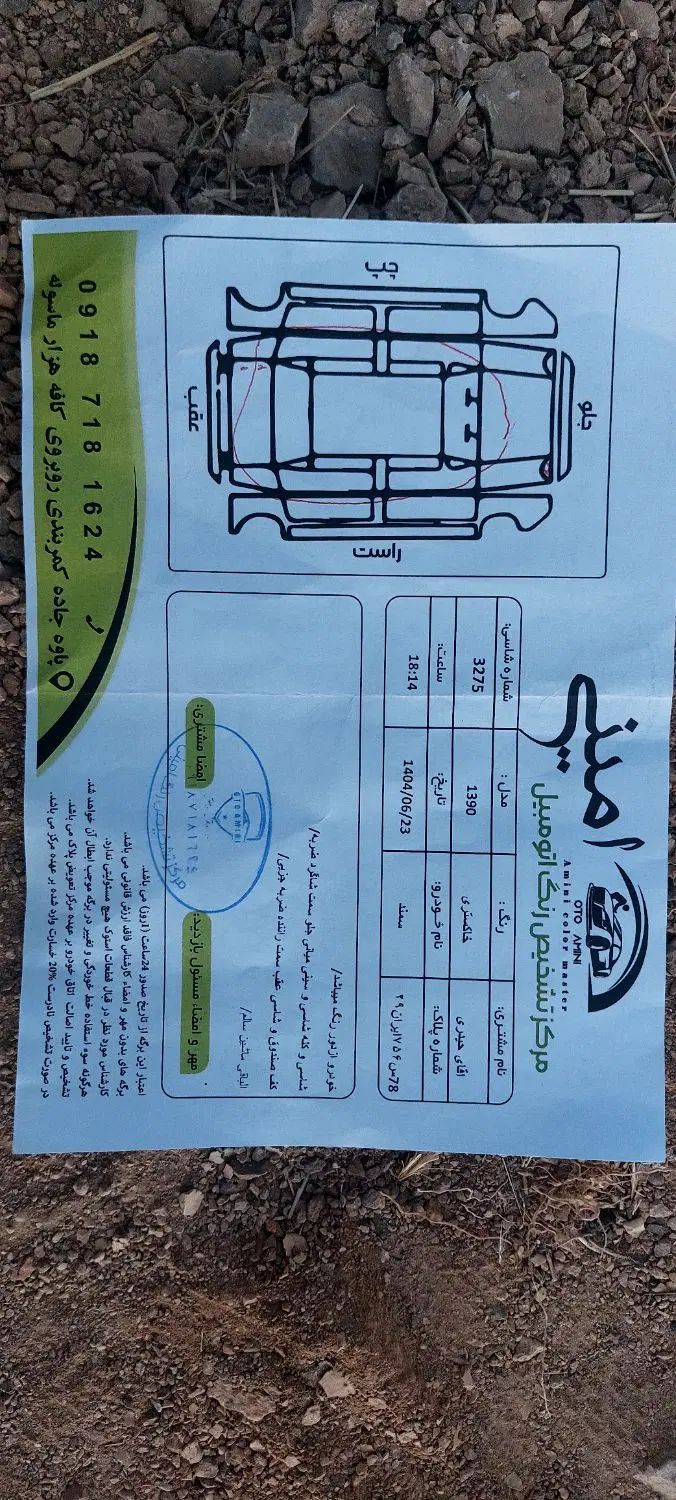 امینی
OTO AMINI
Amini color master
مرکز تشخیص رنگ اتومبیل
نام مشتری: رنگ: مدل: شماره شاسی:
آقای حیدری خاکستری 1390 3275
شماره پلاک: نام خودرو: تاریخ: ساعت:
78س۷۵۶ایران۲۹ سمند 1404/06/23 18:14
جلو
چپ
راست
عقب
خودرو ازدور رنگ میباشد/
شاسی و کله شاسی و سینی میانی جلو سمت شاگرد ضربه/
کف صندوق و شاسی عقب سمت راننده ضربه جزیی/
الباقی ماشین سالم/
مهر و امضاء مسئول بازدید:
امضا مشتری:
OTO AMINI
اعتبار این برگه از تاریخ صدور 24ساعت (1روز) می باشد.
برگه های بدون مهر و امضاء کارشناس فاقد ارزش قانونی می باشد.
کارشناس مورد نظر در قبال قطعات استوک هیچ مسئولیتی ندارد.
هرگونه سوء استفاده خط خوردگی و تغییر در برگه موجب ابطال آن خواهد شد.
تشخیص و تایید اصالت اتاق خودرو بر عهده مرکز تعویض پلاک می باشد.
در صورت تشخیص نادرست 20% خسارت وارد شده بر عهده مرکز می باشد.
0918 718 1624
پاوه جاده کمربندی روبروی کافه هزار ماسوله